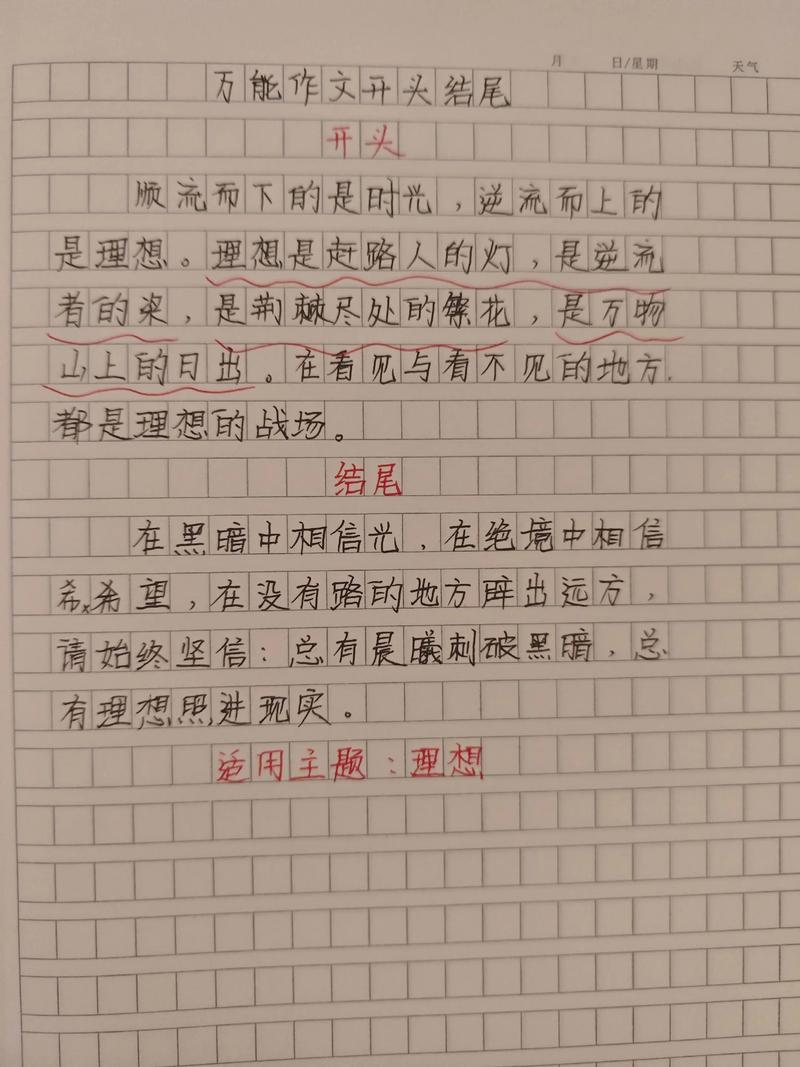 月 日/星期 天气
万能作文开头结尾
开头
顺流而下的是时光，逆流而上的
是理想。理想是赶路人的灯，是逆流
者的桨，是荆棘尽处的繁花，是万物
山上的日出。在看见与看不见的地方.
都是理想的战场。
结尾
在黑暗中相信光，在绝境中相信
希望，在没有路的地方辟出远方，
请始终坚信：总有晨曦刺破黑暗，总
有理想照进现实。
适用主题：理想